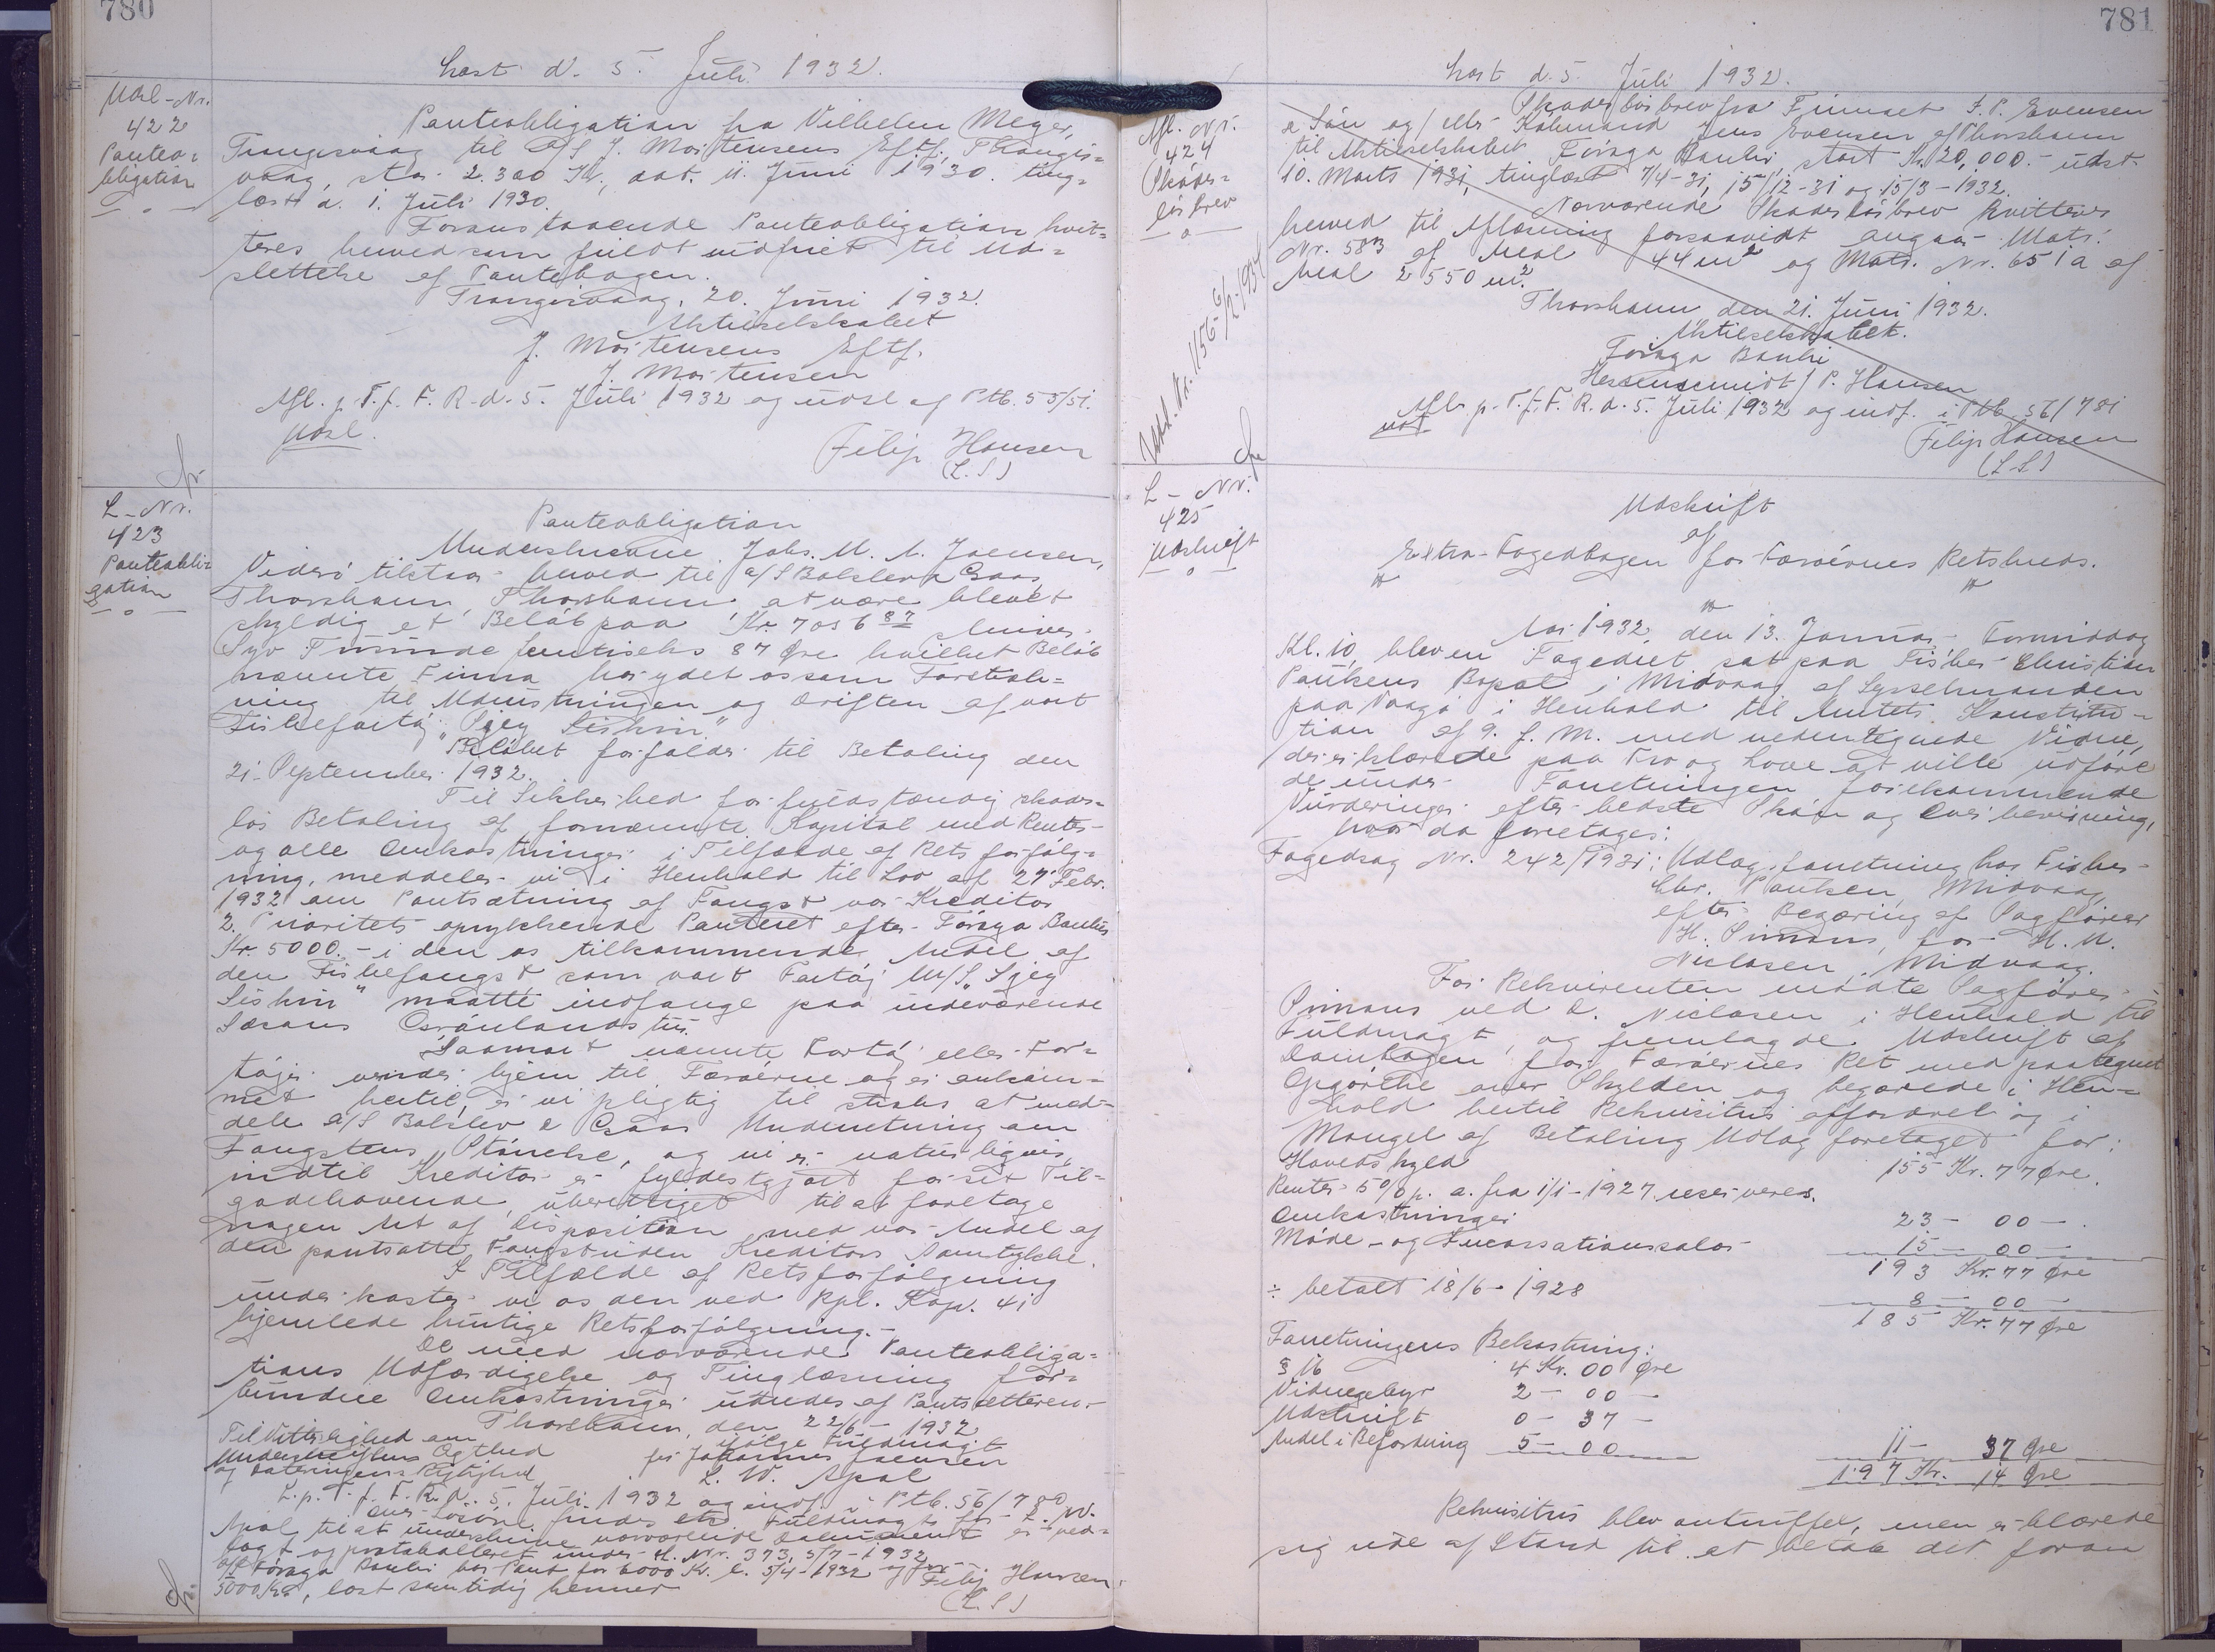 780
Læst d. 5. Juli 1932.
Udsl-Nr.
422
Panteo=
bligation
Panteobligation fra Vilhelm Meyer,
Trangisvaag til A/S J. Mortensens Eftf., Thrangis=
vaag, stor 2.300 Kr., dat. 11. Juni 1930. ting=
læst d. 1. Juli 1930.
Foranstaaende Panteobligation kvit=
teres herved som fuldt indfriet til Ud=
slettelse af Pantebogen.
Trangisvaag, 20. Juni 1932.
Aktieselskabet
J. Mortensens Eftf.
J. Mortensen
Afl. p. T. f. F. R. d. 5. Juli 1932 og udsl af Ptb. 55/51.
Udsl.
Filip Hansen
(L.S)
L-Nr.
423
Panteobli=
gation
Panteobligation
Underskrevne Johs. M. A. Joensen,
Viderö tilstaar herved til A/S Balslev &
Thorshavn, Thorshavn, at være blevet
skyldig et Beløb paa Kr. 7056 87 skriver
Syv Tusinde femtiseks 87 Øre hvilket Beløb
nævnte Firma har ydet os som Forstræk=
ning til Udrustningen og Driften af vort
Fiskefartøj "
Beløbet forfalder til Betaling den
21. September 1932.
Til Sikkerhed for fuldstændig skades=
løs Betaling af fornævnte Kapital med Renter
og alle Omkostninger i Tilfælde af Retsforfølg=
ning, meddeler vi i Henhold til Lov af 27 Febr.
1932 om Pantsætning af Fangst vor Kreditor
2. Prioritets oprykkende Panteret efter Føroya Banks
Kr. 5000.- i den os tilkommende Andel af
den Fiskefangst som vort Fartøj M/S
" maatte indfange paa indeværende
Sæsons Grønlandstur.
Saasnart nævnte Fartøj eller Far=
tøjer vender hjem til Færøerne og er ankom=
met hertil, er vi pligtig til straks at med=
dele A/S Balslev & Underretning om
Fangstens Størrelse, og vi er naturligvis,
indtil Kreditor er fyldestgjort for sit Til=
godehavende, uberettiget til at foretage
nogen Art af Disposition med vor Andel af
den pantsatte Fangst uden Kreditors Samtykke.
I Tilfælde af Retsforfølgning
underkaster vi os den ved Rpl. Kap. 41
hjemlede hurtige Retsforfølgning.-
De med nærværende Panteobliga=
tions Udfærdigelse og Tinglæsning for=
bundne Omkostninger udredes af Pantsætteren.-
Thorshavn, den 22/6 - 1932
Til Vitterlighed om
ifølge Fuldmagt
Underskriftens Ægthed
for Johannes Joensen
og Dateringens Rigtighed
L. W. Apol
L. p. T. f. F. R. d. 5. Juli 1932 og indf i Ptb. 56/780
Fuldmagt for L. W.
Apol til at underskrive nærværende Dokument er ved=
lagt og protokolleret under L. Nr. 373, 5/7-1932
A/S Føroya Banki har Pant for 6000 Kr. l. 5/4-1932 og for
5000 Kr., læst samtidig hermed
Filip Hansen
(L.S)
781
Læst d. 5. Juli 1932.
Afl. Nr.
424
Skades=
løsbrev
Udsl. Nr. 1156-6/12-1937
Skadesløsbrev fra Firmaet J. P. Evensen
& Søn og/eller Købmand Jens Evensen af Thorshavn
til Aktieselskabet Føroya Banki, stort Kr. 20,000.- udst.
10. Marts 1931, tinglæst 7/4-31, 15/12-31 og 15/3-1932.
Nærværende Skadesløsbrev kvitteres
herved til Aflæsning forsaavidt angaar Matr.
Nr. 58 af Areal 44 m2 og Matr. Nr. 651a af
Areal 2550 m2.
Thorshavn den 21. Juni 1932.
Aktieselskabet.
Føroya Banki
Hessenscmidt / P. Hansen
Afl. p. T. f. F. R. d. 5. Juli 1932 og indf. i Ptb 56/781
Filip Hansen
(L.S)
L-Nr.
425
Udskrift
Udskrift
af
Extra-Fogedbogen for Færøernes Retskreds.
Aar 1932, den 13. Januar Formiddag
Kl. 10, blev en Fogedret sat paa Fisker Christian
Paulsens Bopæl i Midvaag af Sysselmanden
paa Vaagø i Henhold til Amtets Konstitu-
tion af 9. f. M. med undertegnede Vidne,
der erklærede paa Tro og Love at ville udføre
de under Forretningen forekommende
Vurderinger efter bedste Skøn og Overbevisning,
hvor da foretages:
Fogedsag Nr. 242/1931: Udlægsforretning hos Fisker
Chr. Paulsen, Midvaag
efter Begæring af Sagfører
H. Simons, for H. M.
Niclasen, Midvaag.
For Rekvirenten mødte Sagfører
Simons ved D. Niclasen i Henhold til
Fuldmagt, og fremlagde Udskrift af
Dombogen for Færøernes Ret med paategnet
Opgørelse over Skylden og begærede i Hen=
hold hertil Rekvisitus affordret og i
Mangel af Betaling Udlæg foretaget for:
Hovedskyld 155 Kr. 77 Øre.
Renter 5% p. a. fra 1/1-1927 reserveres.
Omkostninger 23 - 00 -
Møde- og Incassationssalær 15 - 00 -
193 Kr. 77 Øre
÷ betalt 18/6-1928 8 - 00 -
185 Kr. 77 Øre
Forretningens Bekostning:
§ 16 4 Kr. 00 Øre
Vidnegebyr 2 - 00 -
Udskrift 0 - 37 -
Andel i Befordring 5 - 00
11 - 37 Øre
197 Kr. 14 Øre
Rekvisitus blev antruffet, men erklærede
sig ude af Stand til at betale det foran